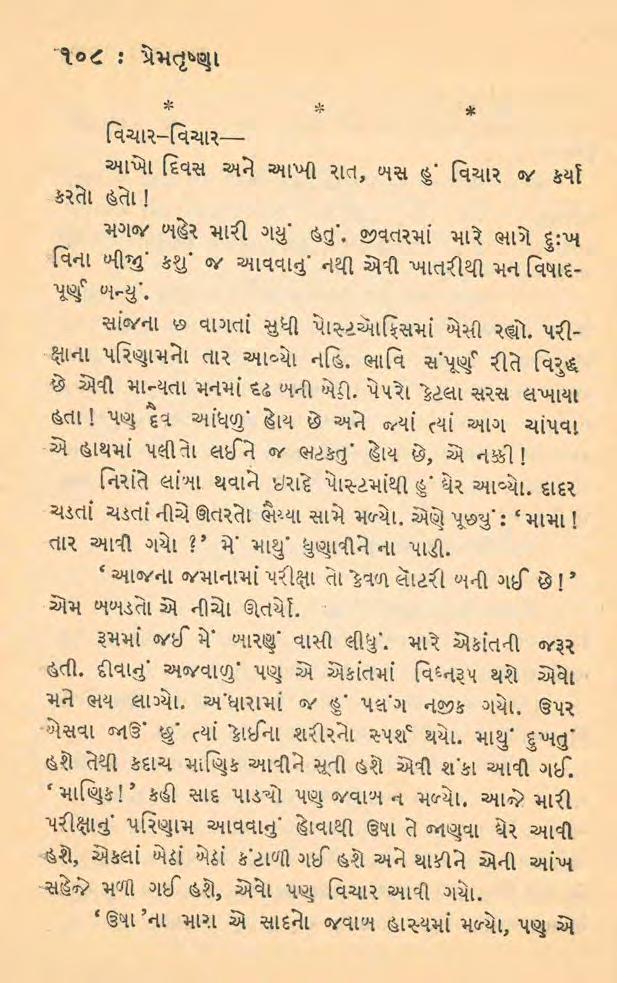 ૧૦૮ : પ્રેમતૃષ્ણા
* * *
વિચાર-વિચાર—
આખો દિવસ અને આખી રાત, બસ હું વિચાર જ કર્યા
કરતો હતો !
મગજ બહેર મારી ગયું હતું. જીવતરમાં મારે ભાગે દુઃખ
વિના બીજું કશું જ આવવાનું નથી એવી ખાતરીથી મન વિષાદ-
પૂર્ણ બન્યું.
સાંજના ૭ વાગતાં સુધી પોસ્ટઑફિસમાં બેસી રહ્યો. પરી-
ક્ષાના પરિણામનો તાર આવ્યો નહિ. ભાવિ સંપૂર્ણ રીતે વિરુદ્ધ
છે એવી માન્યતા મનમાં દૃઢ બની બેઠી. પેપરો કેટલા સરસ લખાયા
હતા ! પણ દૈવ આંધળું હોય છે અને જ્યાં ત્યાં આગ ચાંપવા
એ હાથમાં પલીતો લઈને જ ભટકતું હોય છે, એ નક્કી !
નિરાંતે લાંબા થવાને ઇરાદે પોસ્ટમાંથી હું ઘેર આવ્યો. દાદર
ચડતાં ચડતાં નીચે ઊતરતો ભૈય્યા સામે મળ્યો. એણે પૂછ્યું : ‘મામા !
તાર આવી ગયો ?’ મેં માથું ધુણાવીને ના પાડી.
‘આજના જમાનામાં પરીક્ષા તો કેવળ લૉટરી બની ગઈ છે !’
એમ બબડતો એ નીચો ઊતર્યો.
રૂમમાં જઈ મેં બારણું વાસી લીધું. મારે એકાંતની જરૂર
હતી. દીવાનું અજવાળું પણ એ એકાંતમાં વિઘ્નરૂપ થશે એવો
મને ભય લાગ્યો. અંધારામાં જ હું પલંગ નજીક ગયો. ઉપર
બેસવા જાઉં છું ત્યાં કોઈના શરીરનો સ્પર્શ થયો. માથું દુખતું
હશે તેથી કદાચ માણિક આવીને સૂતી હશે એવી શંકા આવી ગઈ.
‘માણિક!’ કહી સાદ પાડયો પણ જવાબ ન મળ્યો. આજે મારી
પરીક્ષાનું પરિણામ આવવાનું હોવાથી ઉષા તે જાણવા ઘેર આવી
હશે, એકલાં બેઠાં બેઠાં કંટાળી ગઈ હશે અને થાકીને એની આંખ
સહેજે મળી ગઈ હશે, એવો પણ વિચાર આવી ગયો.
‘ઉષા’ના મારા એ સાદનો જવાબ હાસ્યમાં મળ્યો, પણ એ